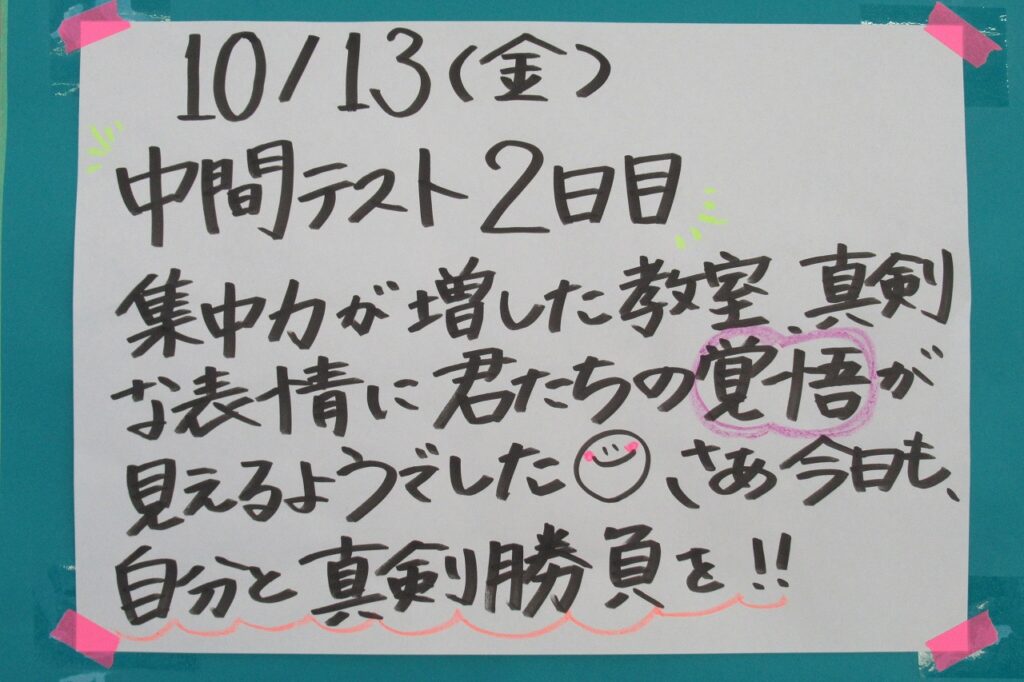 10/13(金)
中間テスト2日目
集中力が増した教室、真剣
な表情に君たちの覚悟が
見えるようでした さあ今日も、
自分と真剣勝負を!!